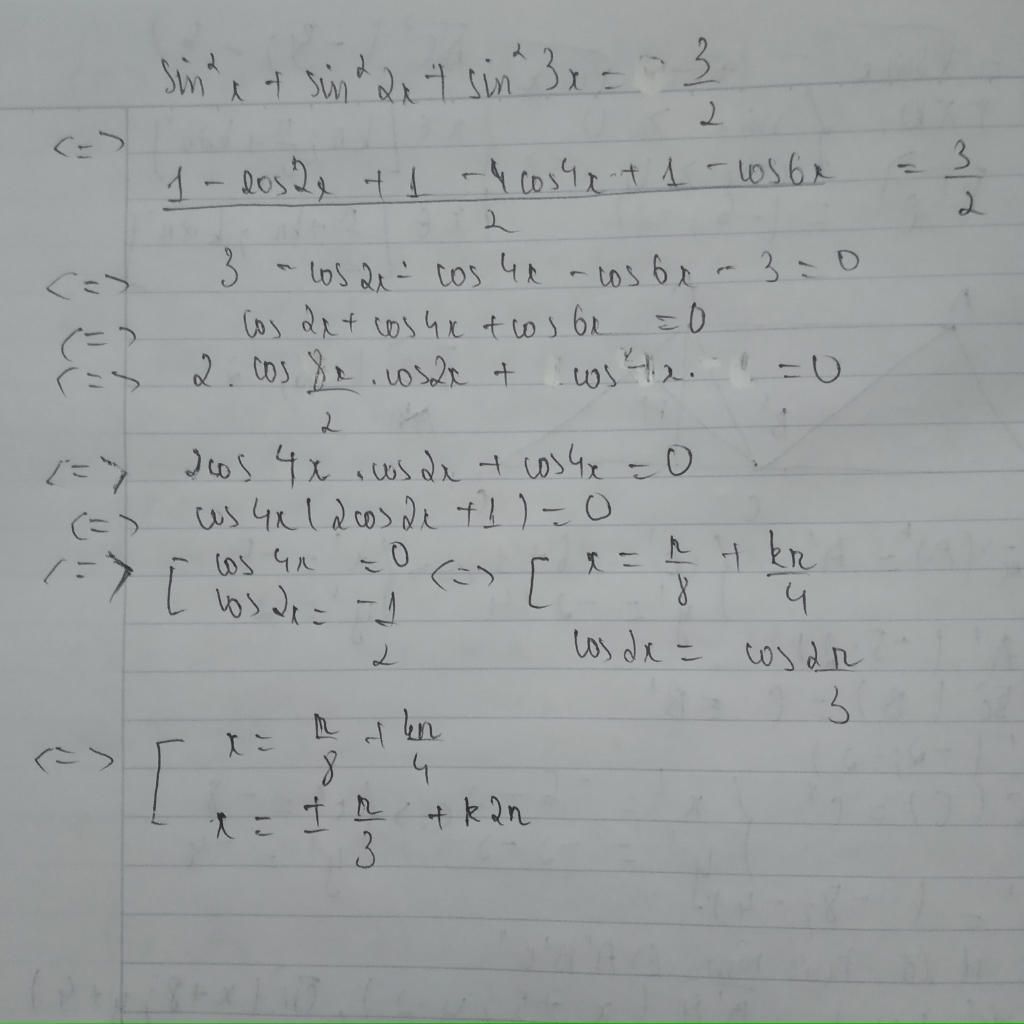 sin²x + sin²2x + sin²3x = 3/2
<=>
(1 - cos2x + 1 - 4cos4x + 1 - cos6x)/2 = 3/2
<=> 3 - cos2x - cos4x - cos6x - 3 = 0
<=> cos2x + cos4x + cos6x = 0
<=> 2.cos 8x/2 .cos2x + cos4x. = 0
<=> 2cos4x.cos2x + cos4x = 0
<=> cos4x(2cos2x + 1) = 0
<=> [ cos4x = 0 <=> [ x = π/8 + kπ/4
cos2x = -1/2 cos2x = cos 2π/3
<=> [ x = π/8 + kπ/4
x = ± π/3 + k2π